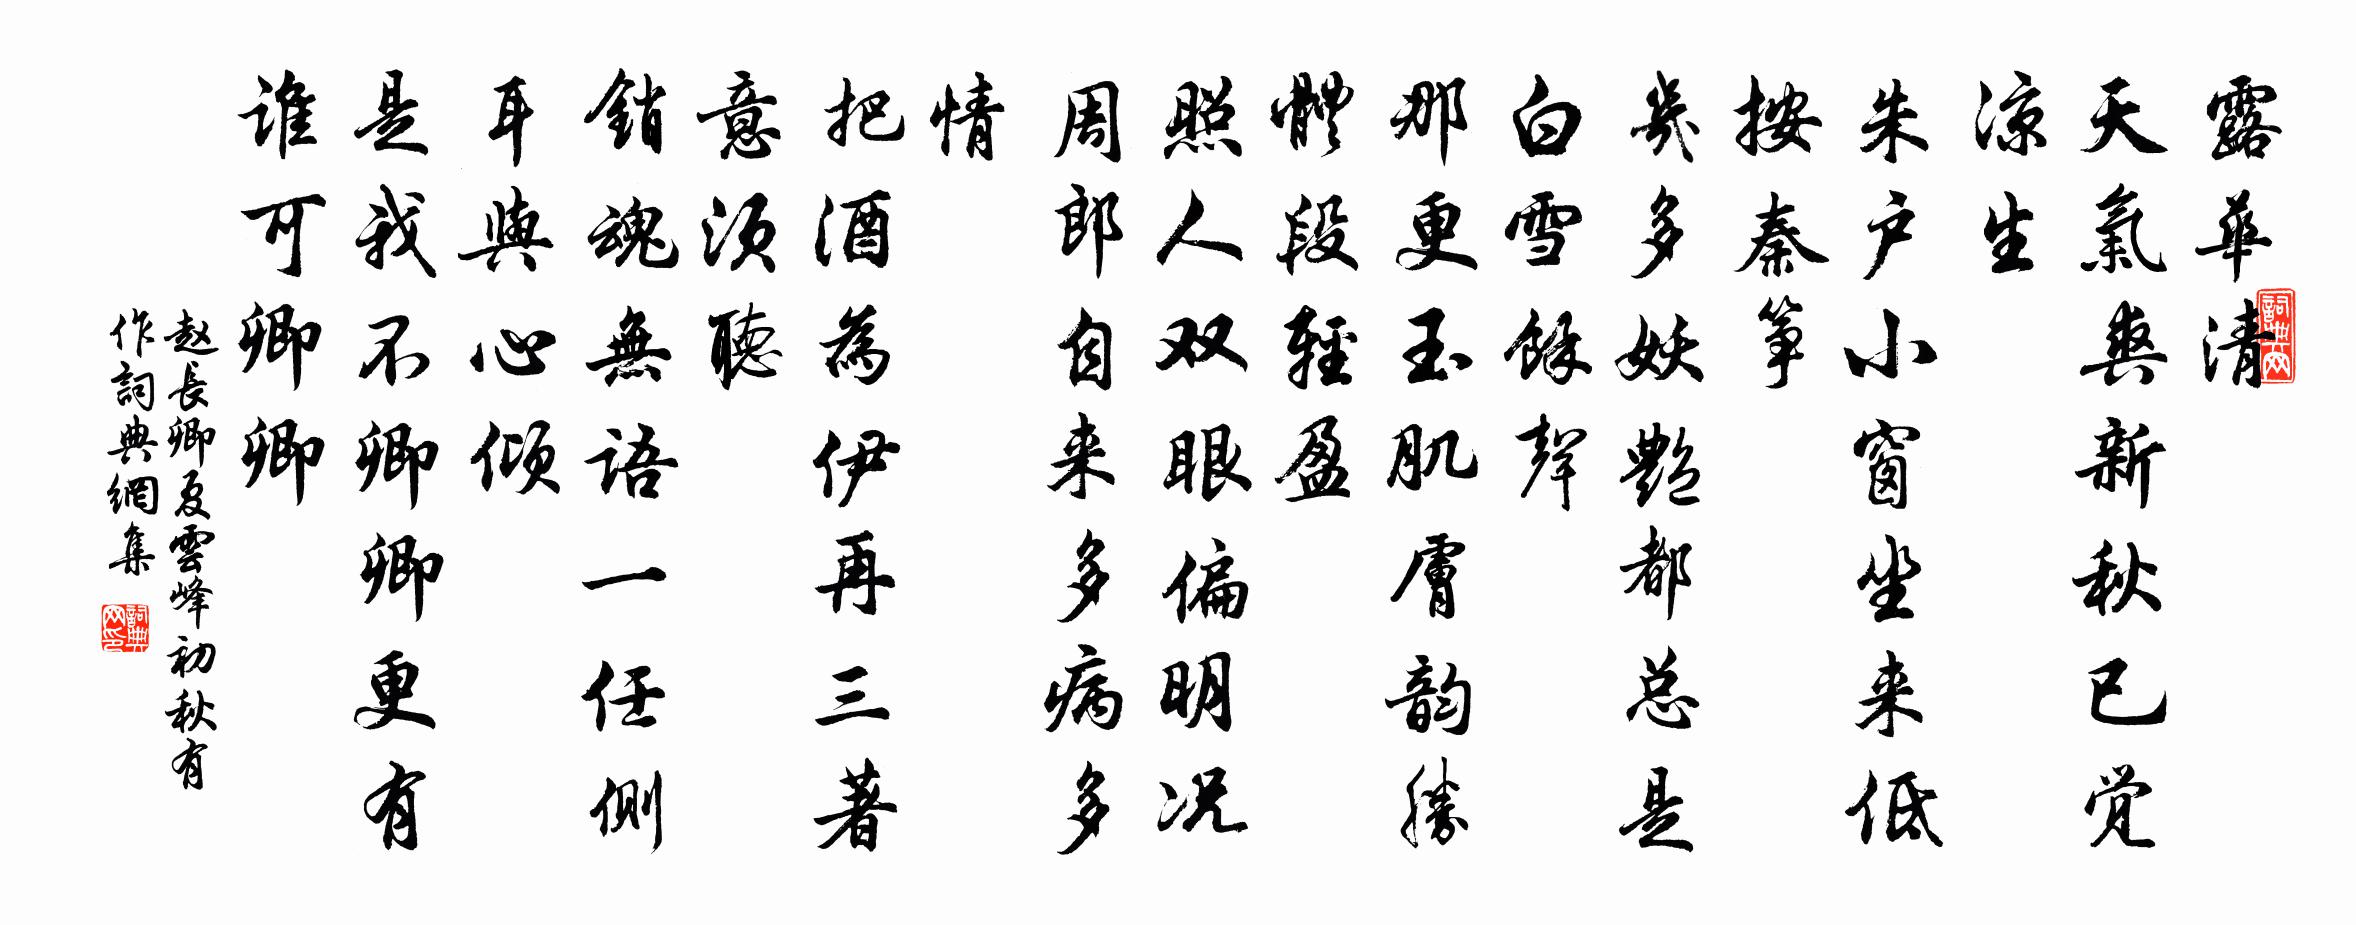 露華清
天氣爽新秋已觉
涼生
朱户小窗坐来低
按秦筝
幾多妖艷都总是
白雪餘聲
那更玉肌膚韵勝
體段輕盈
照人双眼偏明况
周郎自来多病多
情
把酒為伊再三著
意须聽
銷魂無語一任側
耳與心倾
是我不卿卿更有
谁可卿卿
赵長卿夏雲峰初秋有
作詞典網集
詞典网
詞典网印